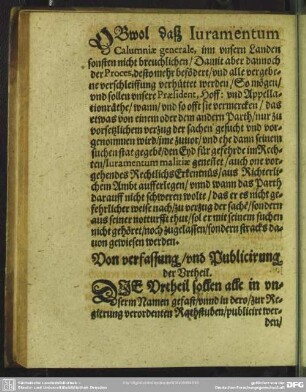 OBwol daß Iuramentum
Calumniæ generale, inn vnsern Landen
sonsten nicht breuchlichen / Damit aber dannoch
der Proces, desto mehr befödert / vnd alle vergebe-
ne verschleiffung verhütet werden / So mögen /
vnd sollen vnsere Præsident, Hoff: vnd Appella-
tionräthe / wann / vnd so offt sie vermercken / das
etwas von einem oder dem andern Parth / nur zu
vorsetzlichem verzug der sachen gesucht vnd vor-
genommen wird / ime zuuor / vnd ehe dann seinem
suchen stat gegebē / den Eyd für gefehrde im Rech-
ten / Iuramentum malitiæ geneñet / auch one vor-
gehendes Rechtlichs Erkentnüs / aus Richterli-
chem Ambt aufferlegen / vnnd wann das Parth
darauff nicht schweren wolte / das er es nicht ge-
fehrlicher weise nach / zu verzug der sachē / sondern
aus seiner notturfft thue / sol er mit seinem suchen
nicht gehöret / noch zugelassen / sondern stracks da-
uon gewiesen werden.
Von verfassung / vnd Publicirung
der Vrtheil.
DIE Vrtheil sollen alle in vn-
serm Namen gefast / vnnd in dero / zur Re-
gierung verordenten Rathstuben / publicirt wer-
den /